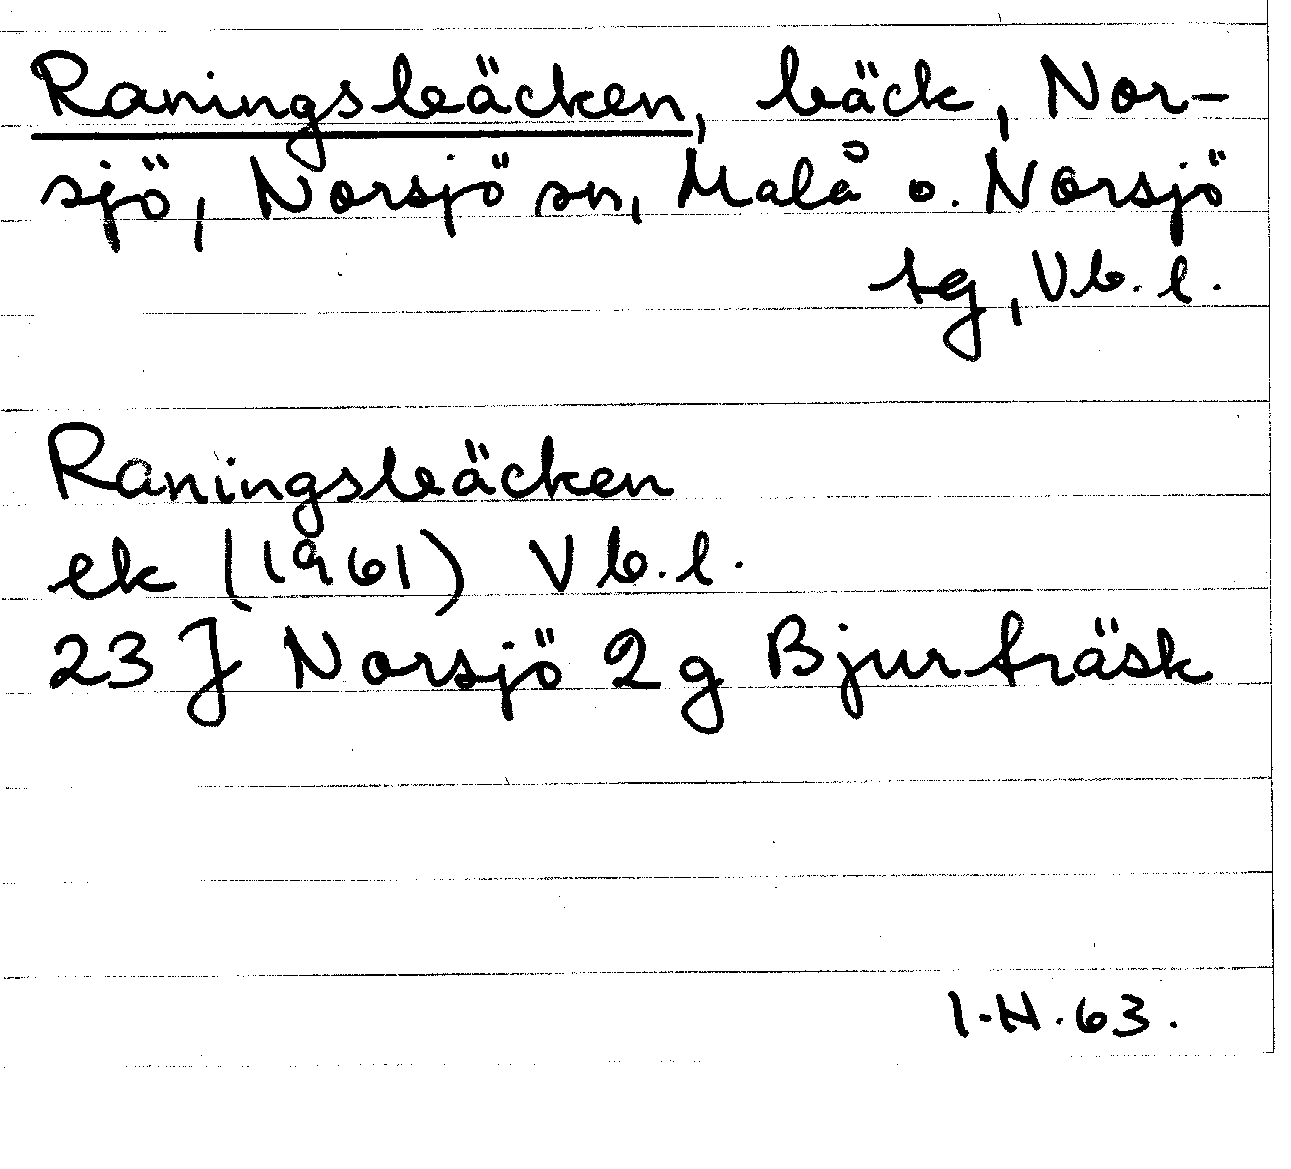 Raningsbäcken, bäck, Nor-
sjö, Norsjö sn, Malå o. Norsjö
tg, Vb. l.
Raningsbäcken
ek (1961) Vb. l.
23 J Norsjö 2 g Bjurträsk
I.H. 63.